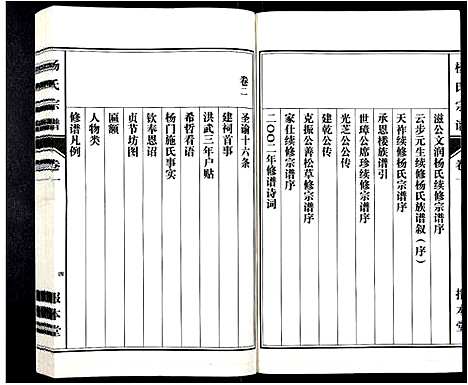 杨氏宗谱
卷一
报本堂
滋公文润杨氏续修宗谱序
云步元生续修杨氏族谱叙（序）
天祚续修杨氏宗谱序
承恩楼族谱引
世璋公席珍续修宗谱序
光芝公公传
建乾公传
克振公善松草修宗谱序
家仕续修宗谱序
二〇〇二年修谱诗词
卷二
圣谕十六条
建祠首事
洪武三年户贴
希哲看语
杨门施氏事实
钦奉恩语
贞节坊图
匾额
人物类
修谱凡例
杨氏宗谱
卷一
四
报本堂